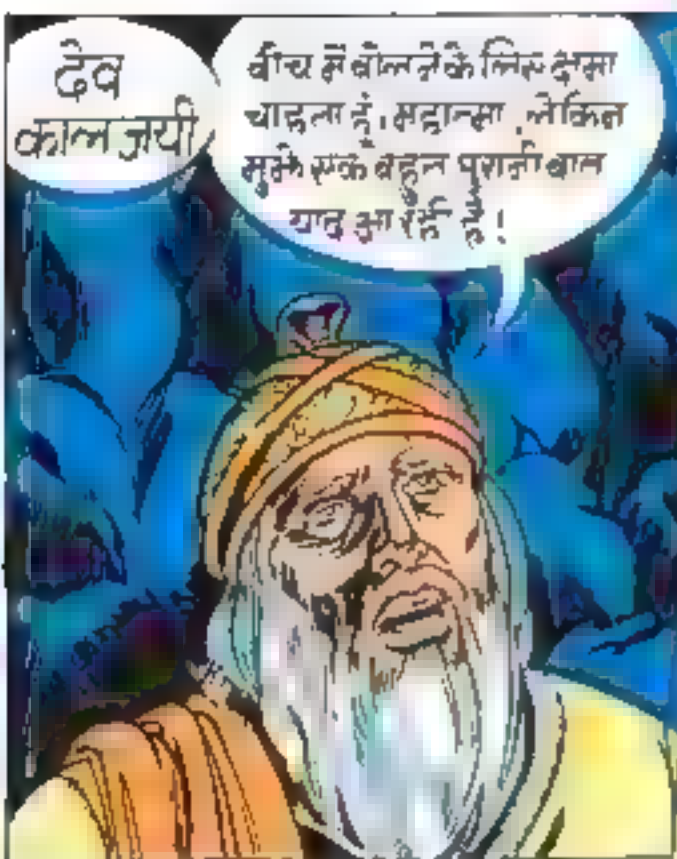 देव
कालजयी
बीच में बोलने के लिए क्षमा
चाहता हूं। महात्मा, लेकिन
मुझे एक बहुत पुरानी बात
याद आ रही है!